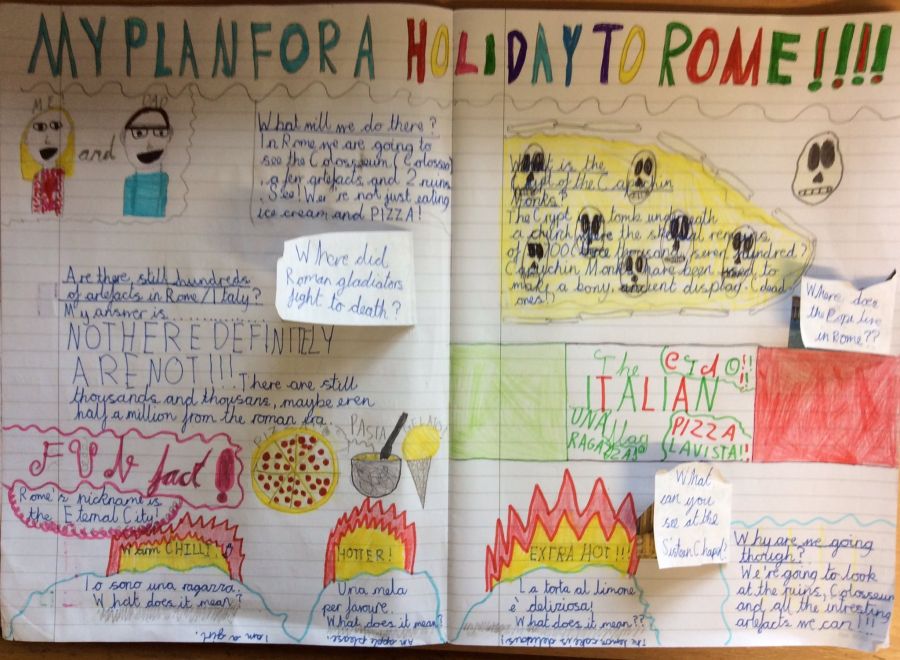 MY PLAN FOR A HOLIDAY TO ROME!!!!
ME
and
What will we do there?
In Rome we are going to
see the Colosseum (Colosseo)
, a few artefacts and 2 ruins.
See! We're not just eating
ice cream and PIZZA!
Where did
Roman gladiators
fight to death?
Are there still hundreds
of artefacts in Rome/Italy?
My answer is..............
NO THERE DEFINITELY
ARE NOT!!!
There are still
thousands and thousans, maybe even
half a million from the roman era.
FUN fact!
Rome's nickname is
the Eternal City!
PASTA
GELATO
Warm CHILLI
Io sono una ragazza.
What does it mean?
I am a girl.
HOTTER!
Una mela
per favoure.
What does it mean?
An apple please.
What is the
Crypt of the Capuchin
Monks?
The Crypt tomb underneath
a church where the skeletal remains
of 3,700 (three thousand, seven hundred?
Capuchin Monks) have been used to
make a bony, ancient display. (dead
ones!)
Where does
the Pope live
in Rome??
The
ITALIAN
UNA
RAGAZZA!
PIZZA
LAVISTA!!
What
can you
see at the
Sistan Chapel?
EXTRA HOT!!!
La torta al limone
è deliziosa!
What does it mean??
The lemon cake is delicious!
Why are we going
though?
We're going to look
at the ruins, Colosseum
and all the intresting
artefacts we can!!!